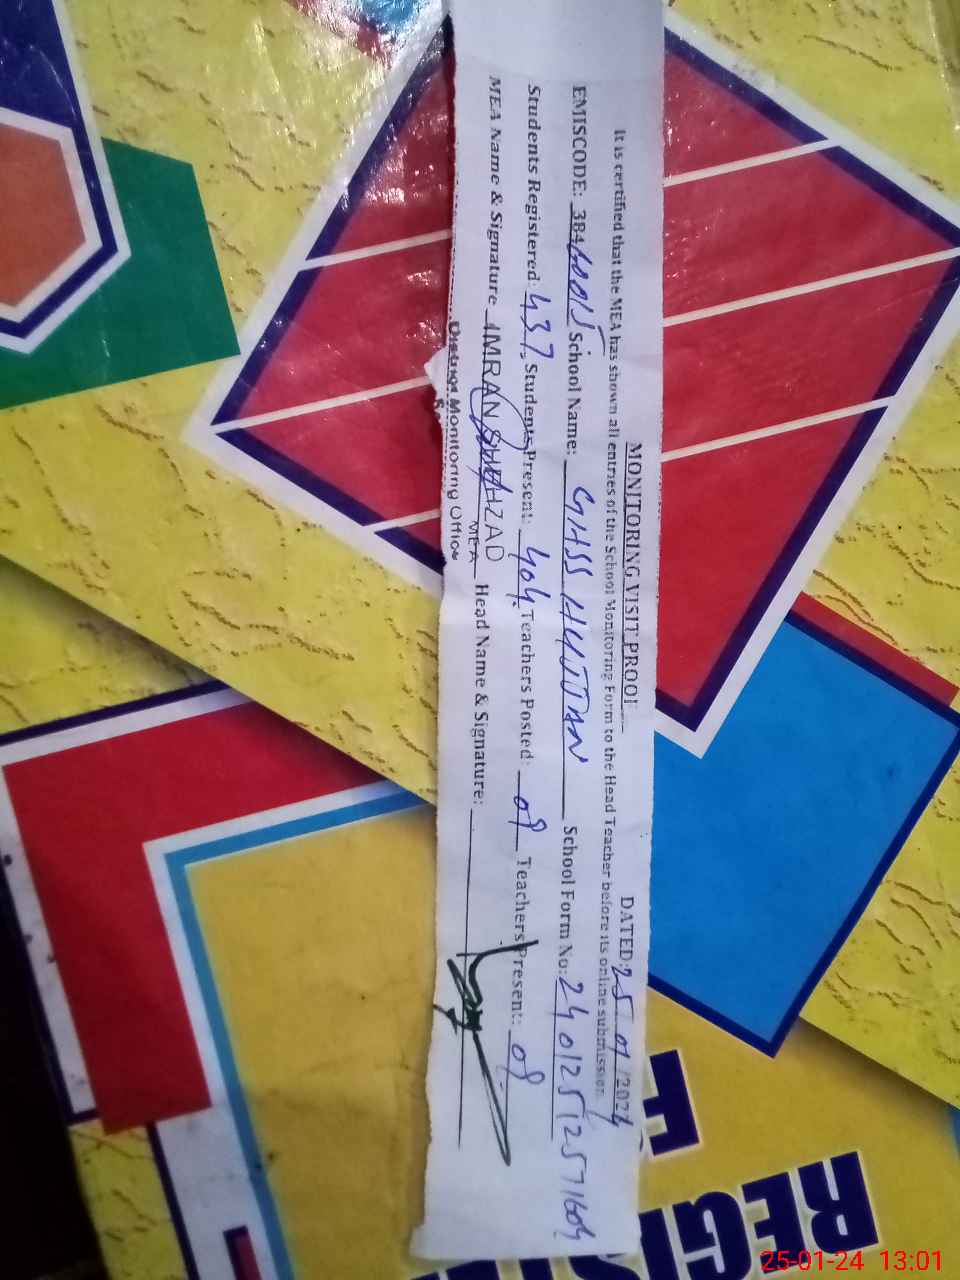 MONITORING VISIT PROOF DATED: 25 01 /2024
It is certified that the MEA has shown all entries of the School Monitoring Form to the Head Teacher before its online submission.
EMISCODE: 38460015 School Name: GHSS HUJJAN School Form No: 2401251257160
Students Registered: 437 Students Present: 404 Teachers Posted: 08 Teachers Present: 08
MEA Name & Signature IMRAN SHEHZAD Head Name & Signature:
MEA
District Monitoring Office
REGIS
25-01-24 13:01